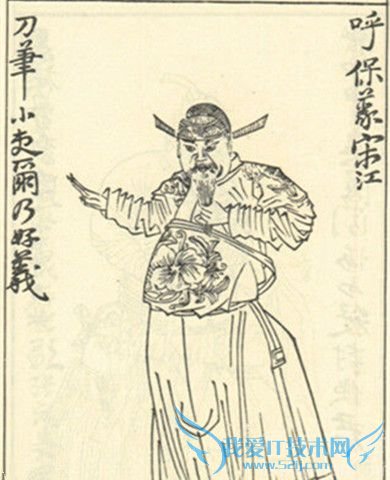 呼保義宋江
刀筆小吏爾乃好義
我爱IT技术网
www.52ij.com